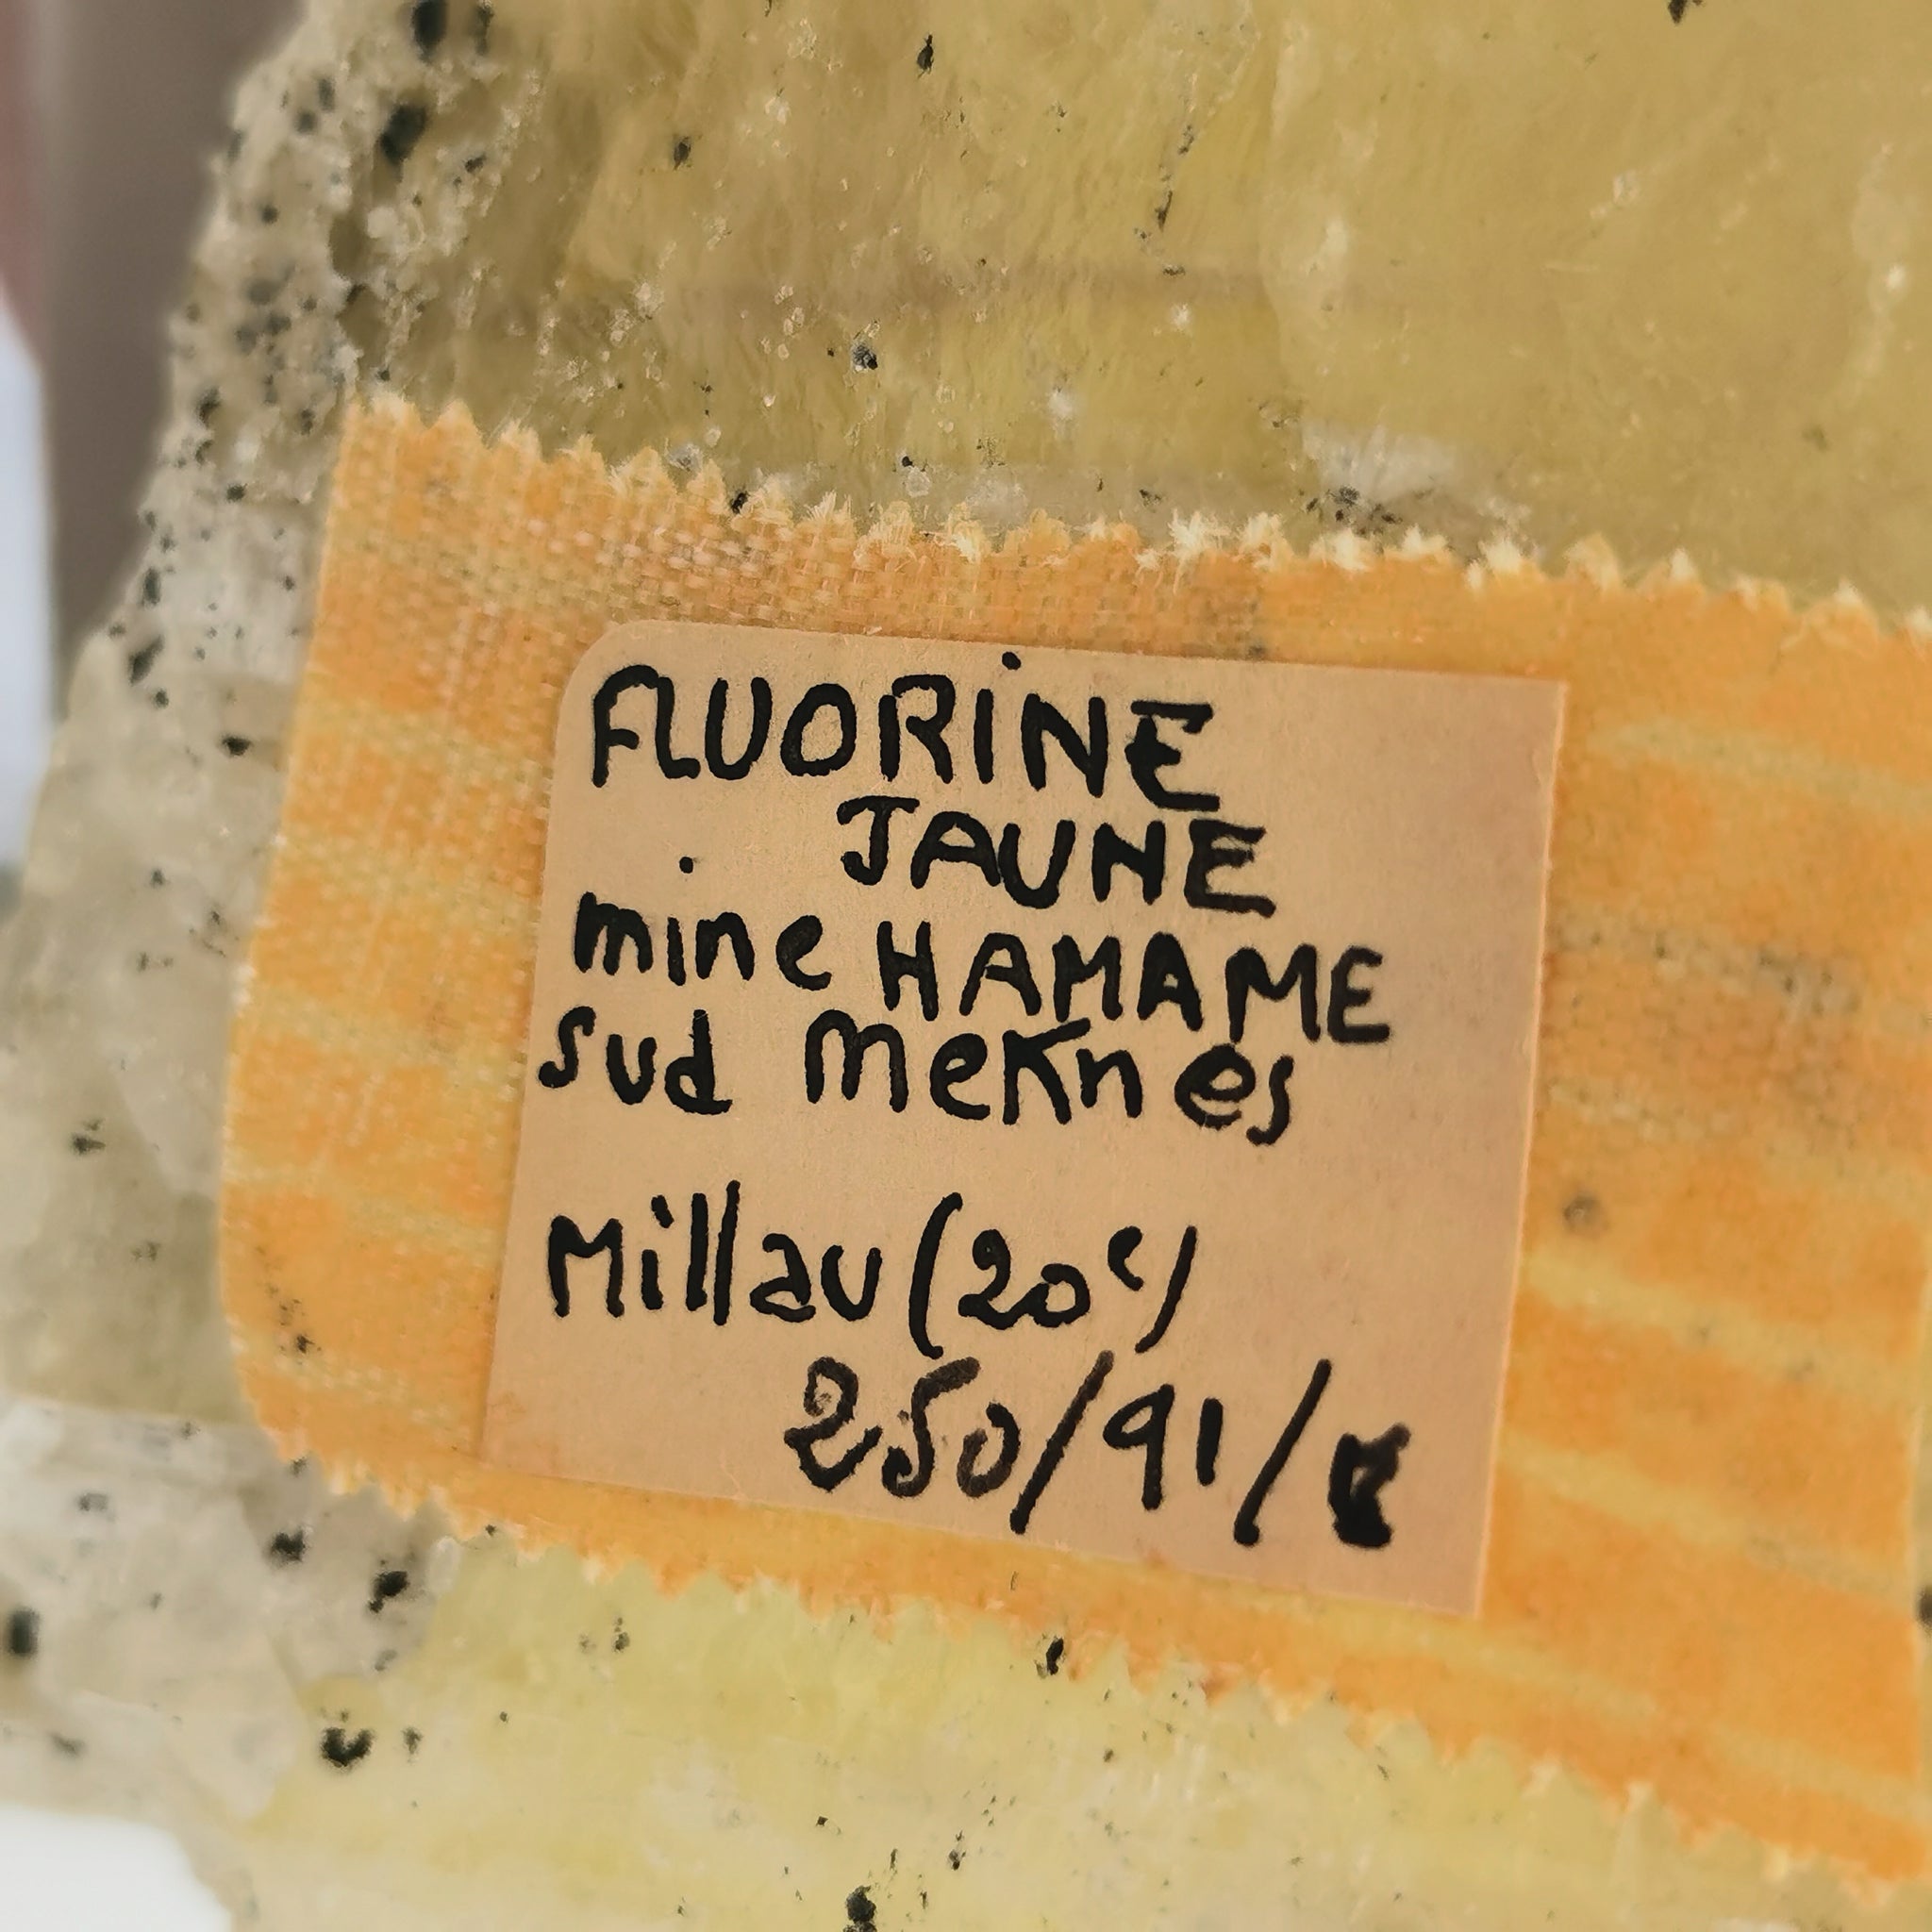 FLUORINE
JAUNE
mine HAMAME
sud Meknes
Millau (20e)
250/91/